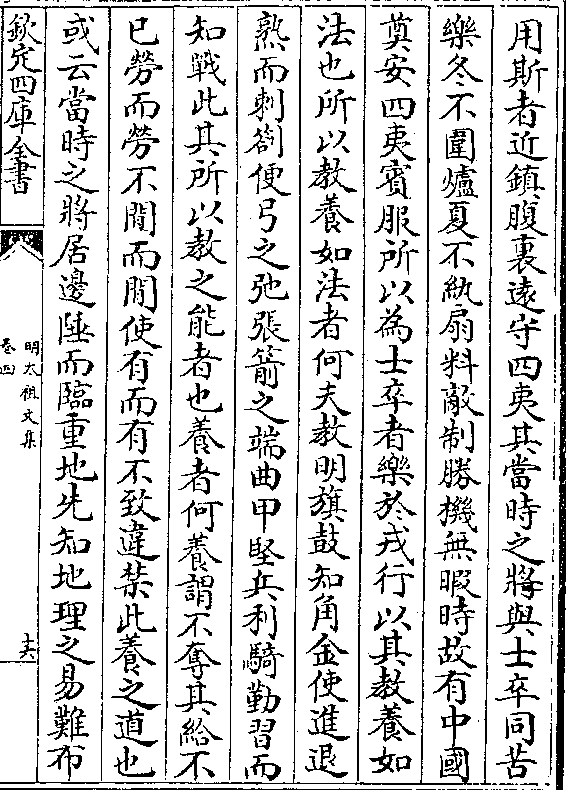 用斯者近鎮腹裏遠守四夷其當時之將與士卒同苦
樂冬不圍爐夏不紈扇料敵制勝機無暇時故有中國
奠安四夷賓服所以為士卒者樂於戎行以其教養如
法也所以教養如法者何夫教明旗鼓知角金使進退
熟而刺劄便弓之弛張箭之端曲甲堅兵利騎勤習而
知戰此其所以教之能者也養者何養謂不奪其給不
已勞而勞不閒而閒使有而有不致違禁此養之道也
或云當時之將居邊陲而臨重地先知地理之易難布
欽定四庫全書
明太祖文集
卷四
十六